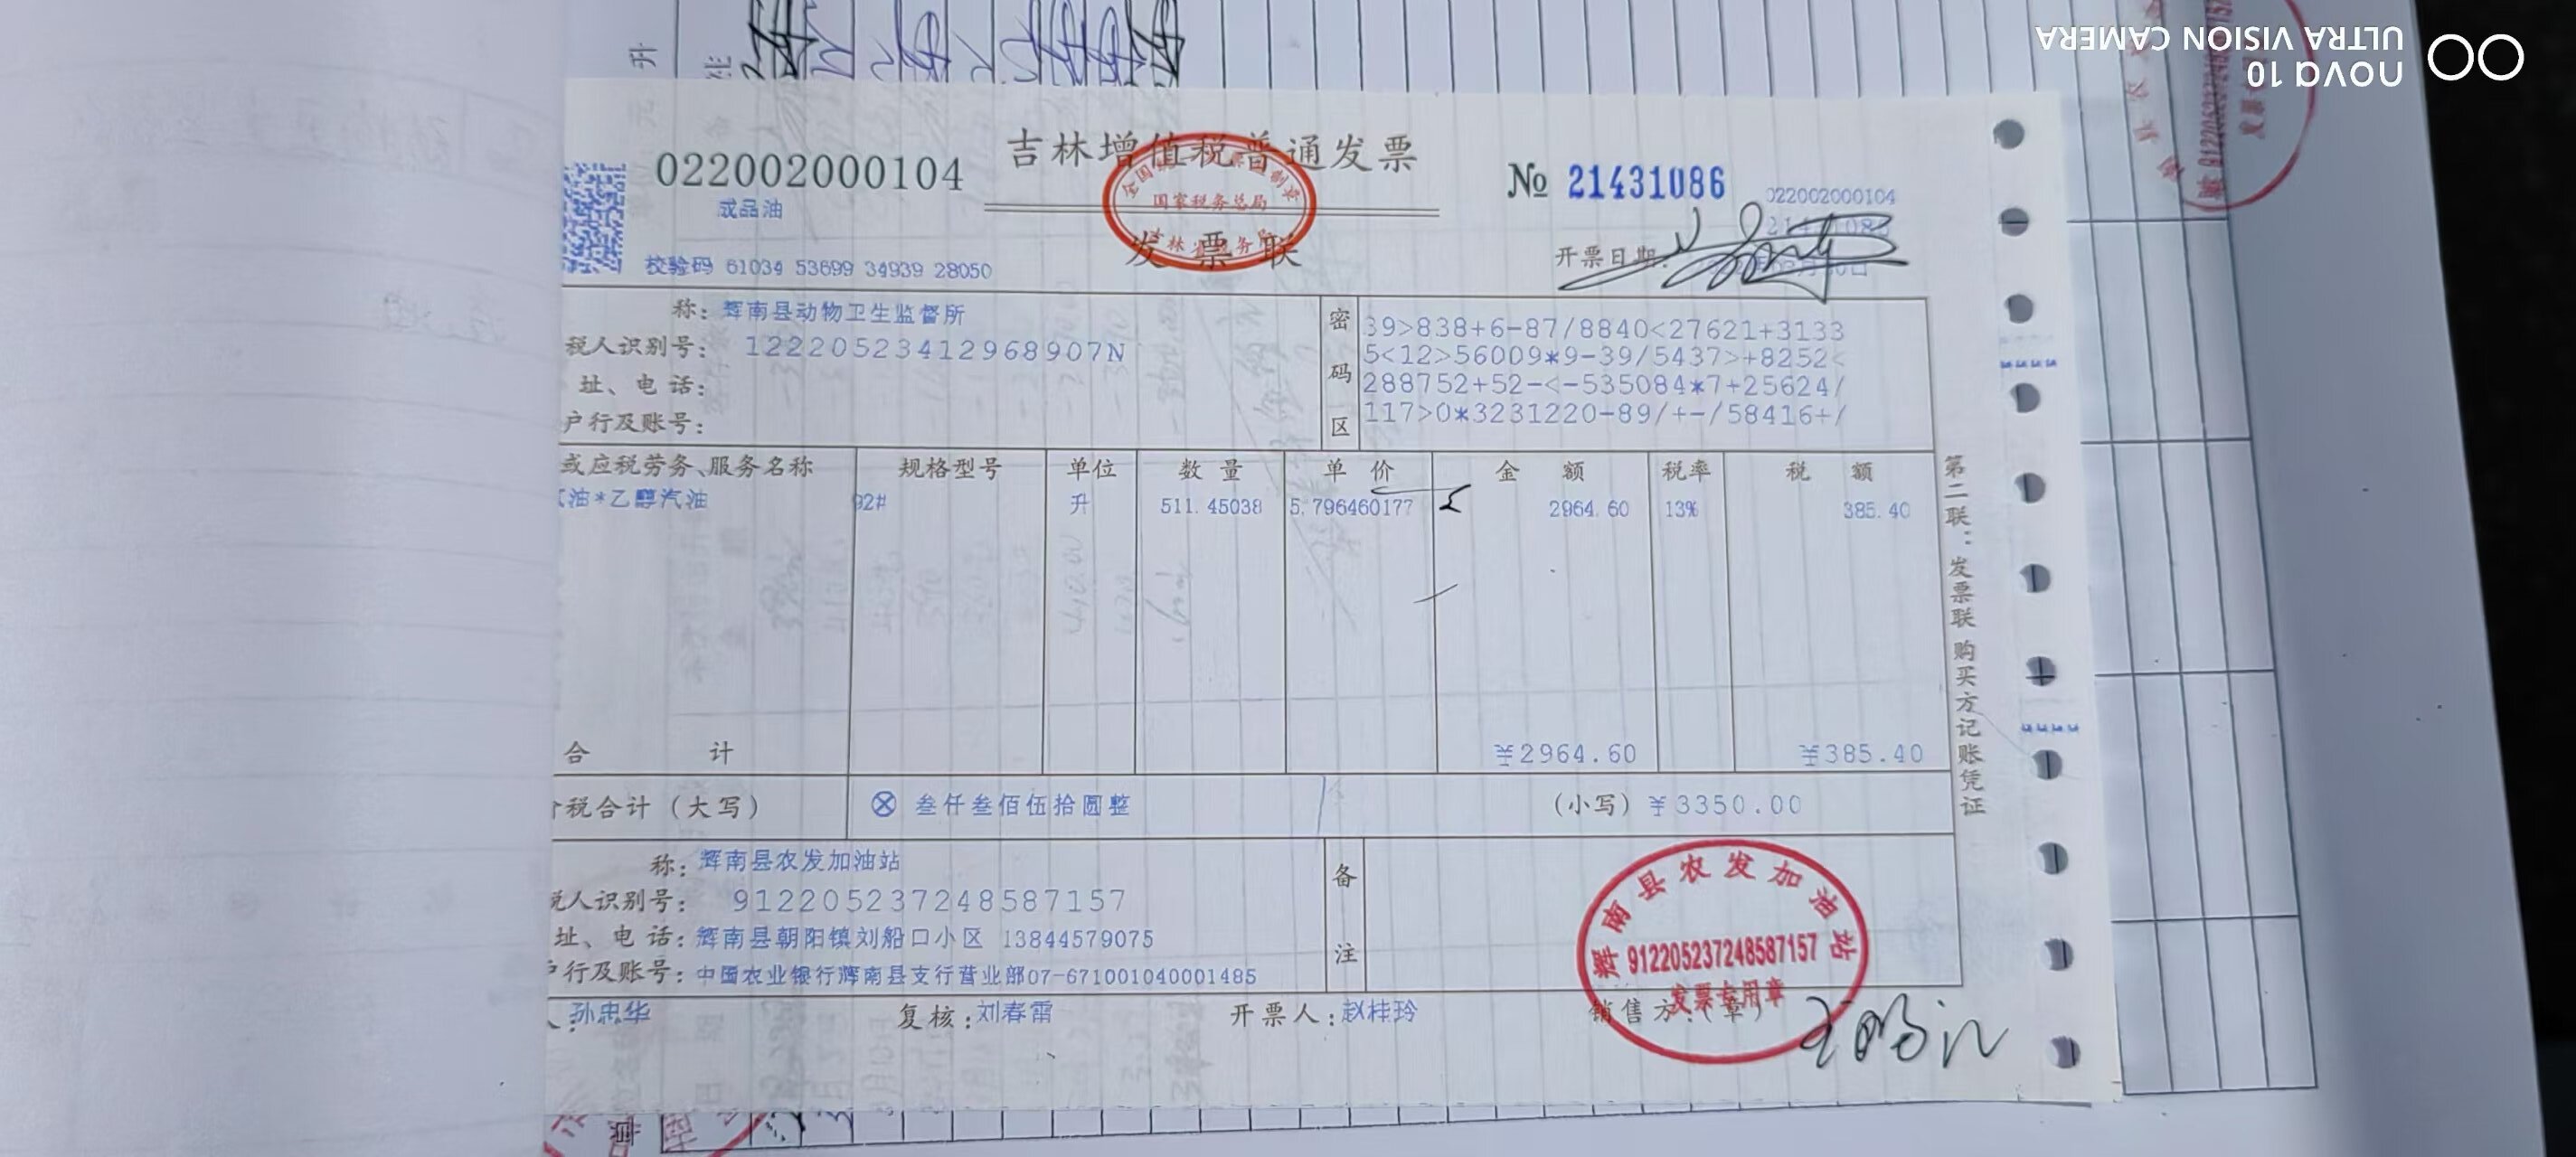 nova 10
ULTRA VISION CAMERA
吉林增值税普通发票
发票联
全国统一发票监制章
国家税务总局
吉林省税务局
022002000104
成品油
校验码 61034 53699 34939 28050
№ 21431086
022002000104
开票日期:
称: 辉南县动物卫生监督所
税人识别号: 12220523412968907N
址、电话:
户行及账号:
密码区
39>838+6-87/8840<27621+3133
5<12>56009*9-39/5437>+8252<
288752+52-<-535084*7+25624/
117>0*3231220-89/+-/58416+/
或应税劳务、服务名称 规格型号 单位 数量 单价 金额 税率 税额
油*乙醇汽油 92# 升 511.45038 5.796460177 2964.60 13% 385.40
合计 ¥2964.60 ¥385.40
税合计(大写) ⊗ 叁仟叁佰伍拾圆整 (小写) ¥3350.00
称: 辉南县农发加油站
税人识别号: 912205237248587157
址、电话: 辉南县朝阳镇刘船口小区 13844579075
户行及账号: 中国农业银行辉南县支行营业部07-671001040001485
备注
孙忠华 复核: 刘春霄 开票人: 赵桂玲 销售方:(章)
辉南县农发加油站
912205237248587157
发票专用章
第二联:发票联 购买方记账凭证